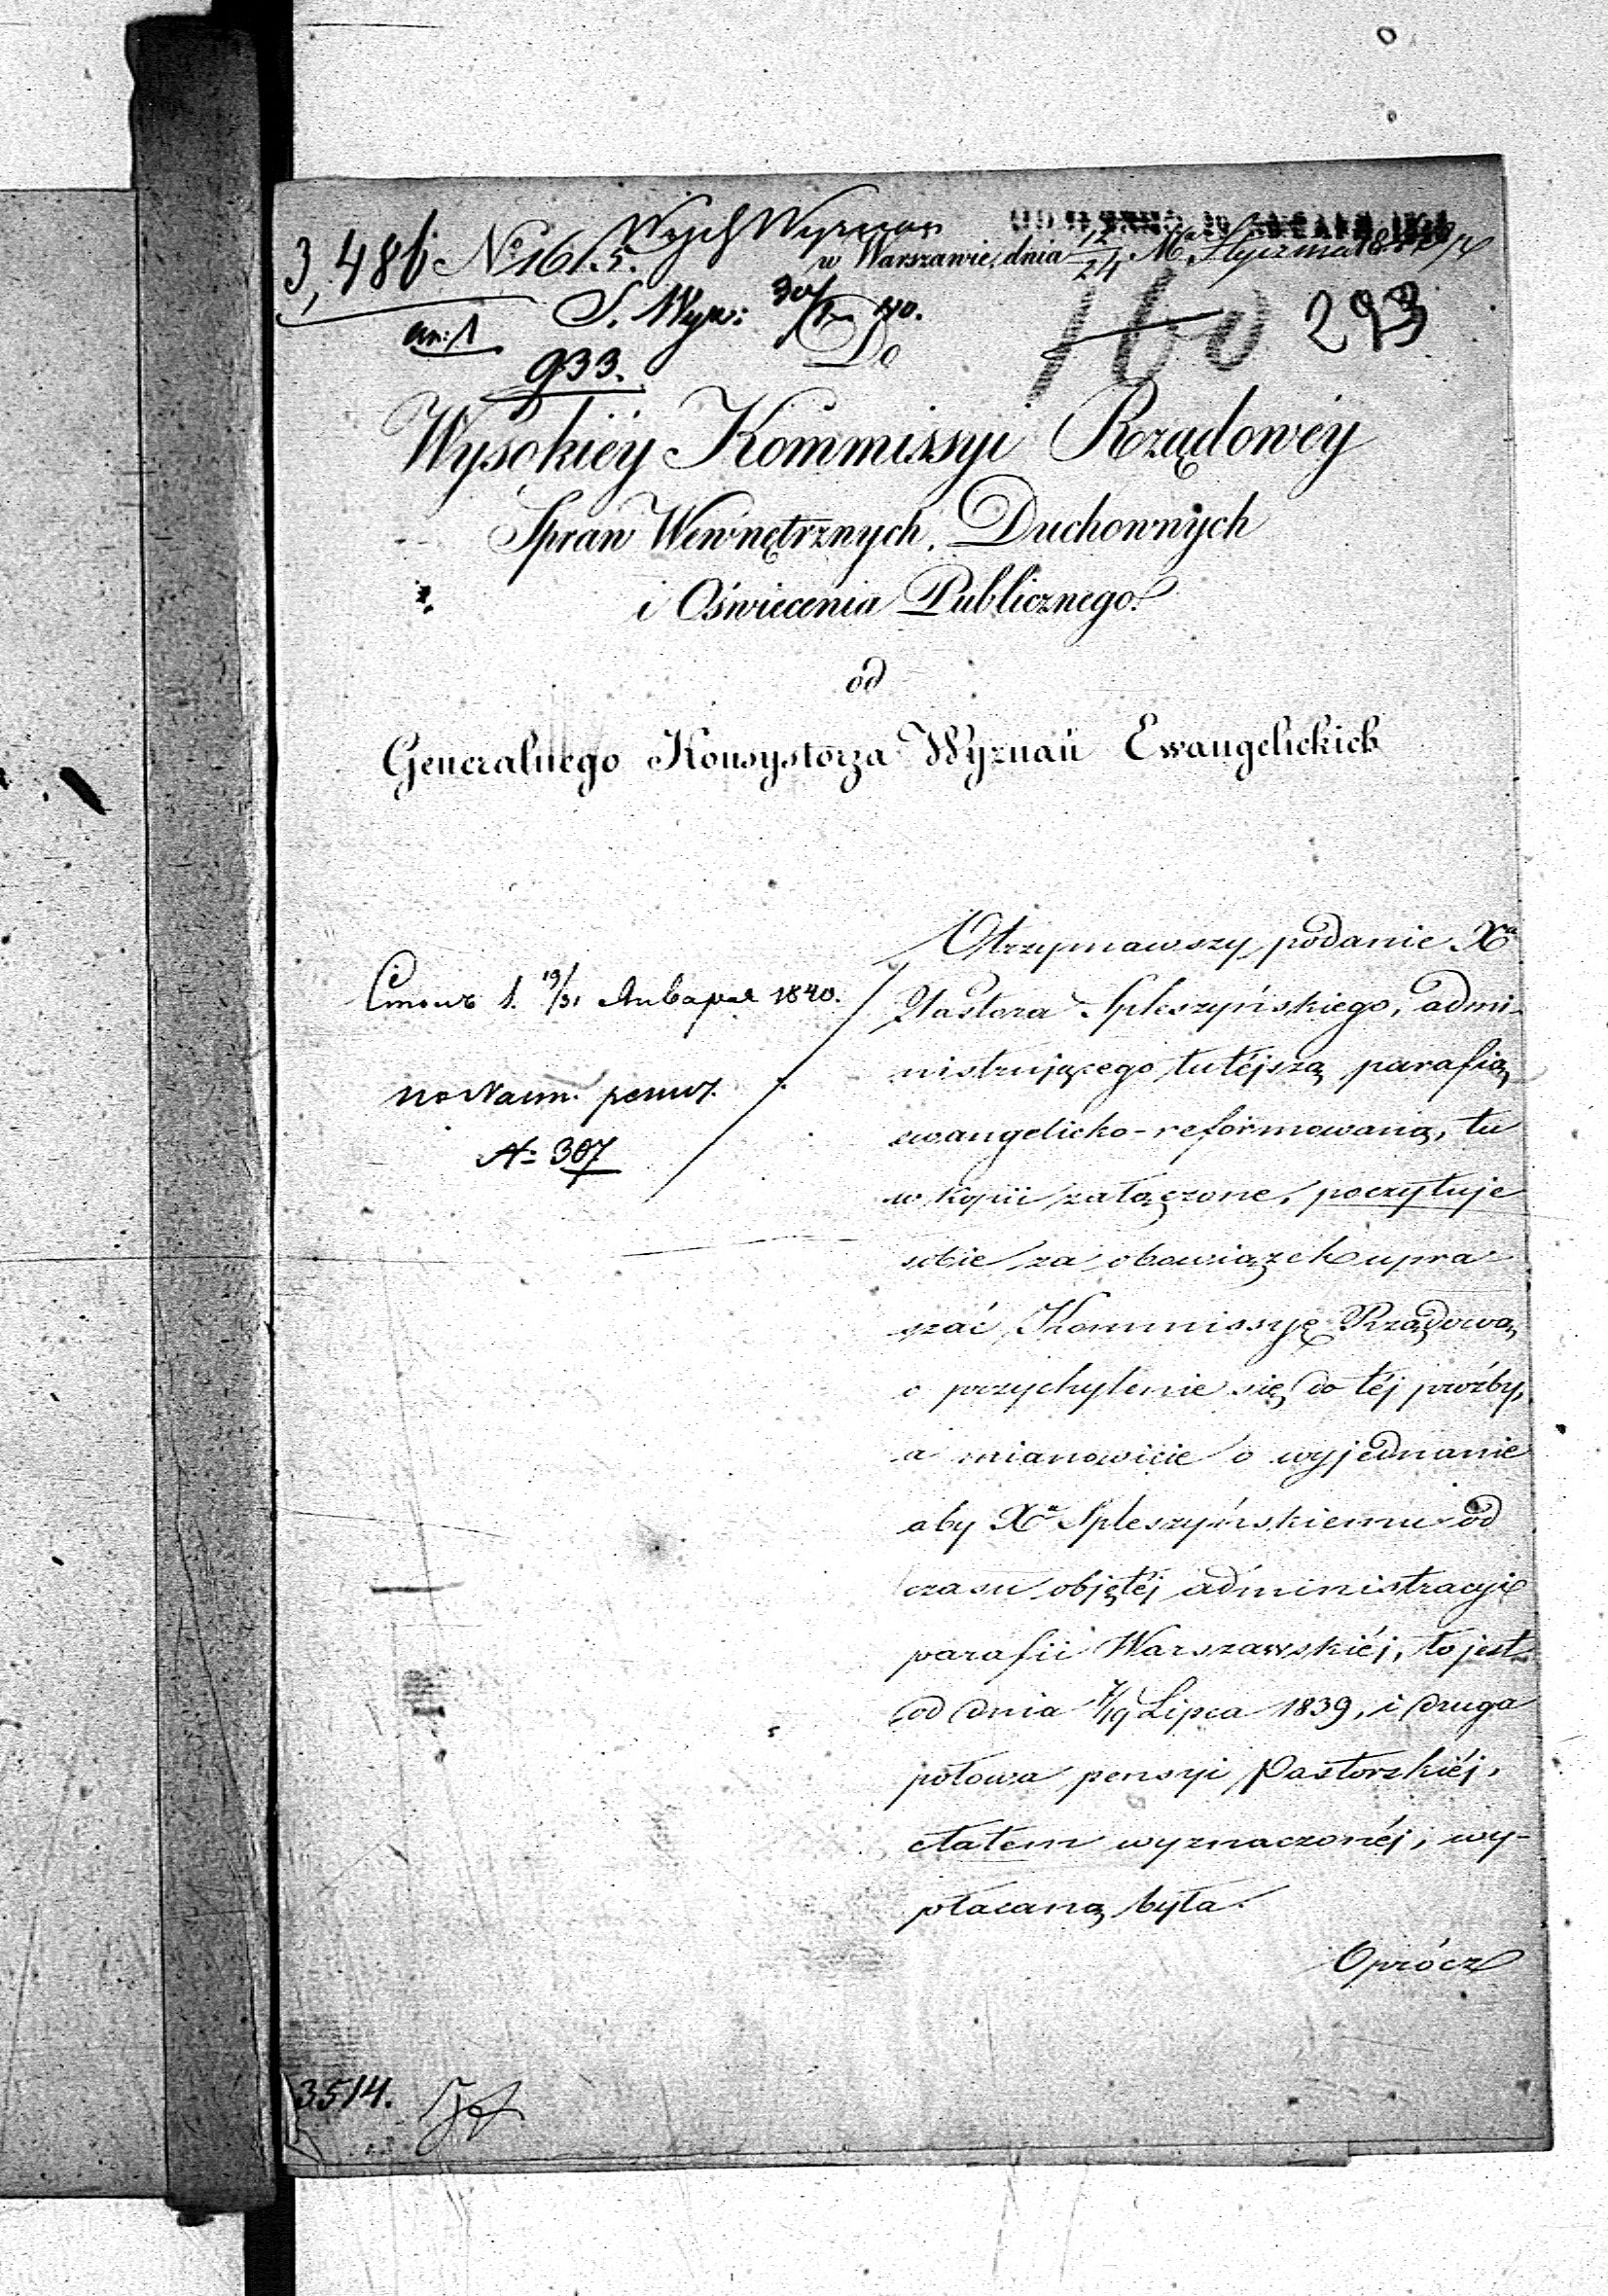 3,486 No 1615. Wydz Wyznań
w Warszawie, dnia 12/24 Mca Stycznia 1840/r
S. Wyzn: 30/1 40.
an: 1
933.
293
Do
Wysokiéy Kommissyi Rządowéy
Spraw Wewnętrznych, Duchownych
i Oświecenia Publicznego.
od
Generalnego Konsystorza Wyznań Ewangelickich
Otrzymawszy podanie Xa
Pastora Spleszyńskiego, admi-
nistrującego tutéjszą parafią
ewangelicko-reformowaną, tu
w kopii załączone, poczytuje
sobie za obowiązek upra-
szać Kommissyę Rządową
o przychylenie się do téj prośby,
a mianowicie o wyjednanie
aby Xu Spleszyńskiemu od
czasu objętéj administracyi
parafii Warszawskiéj, to jest
od dnia 7/19 Lipca 1839, i druga
połowa pensyi Pastorskiéj,
etatem wyznaczonéj, wy-
płacaną była.
Oprócz
19/31 Января 1840.
No 307
3514.